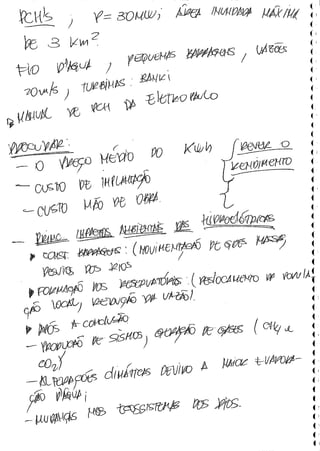 PCH's, P=30MW, ÁREA INUNDADA MÁXIMA
DE 3 Km².
FIO D'ÁGUA, PEQUENAS BARRAGENS, VAZÕES
20m/s, TURBINAS: BANKI
MANUAL DE PCH DA ELETROPAULO
PROCURAR:
- O PREÇO MÉDIO DO KWh
REVER O
RENDIMENTO
- CUSTO DE IMPLANTAÇÃO
- CUSTO MÃO DE OBRA
- PRINC. IMPACTOS AMBIENTAIS DAS HIDROELÉTRICAS
CONST. BARRAGENS: (MOVIMENTAÇÃO DE GDES MASSAS,
DESVIOS DOS RIOS
FORMAÇÃO DOS RESERVATÓRIOS: (DESLOCAMENTO DA POPULA
ÇÃO LOCAL, REDUÇÃO DA VAZÃO).
APÓS A CONCLUSÃO
- PRODUÇÃO DE SISMOS, DE GASES (CH4 e
CO2)
- ALTERAÇÕES CLIMÁTICAS DEVIDO A MAIOR EVAPORA-
ÇÃO D'ÁGUA;
- MUDANÇAS NOS ECOSSISTEMAS DOS RIOS.